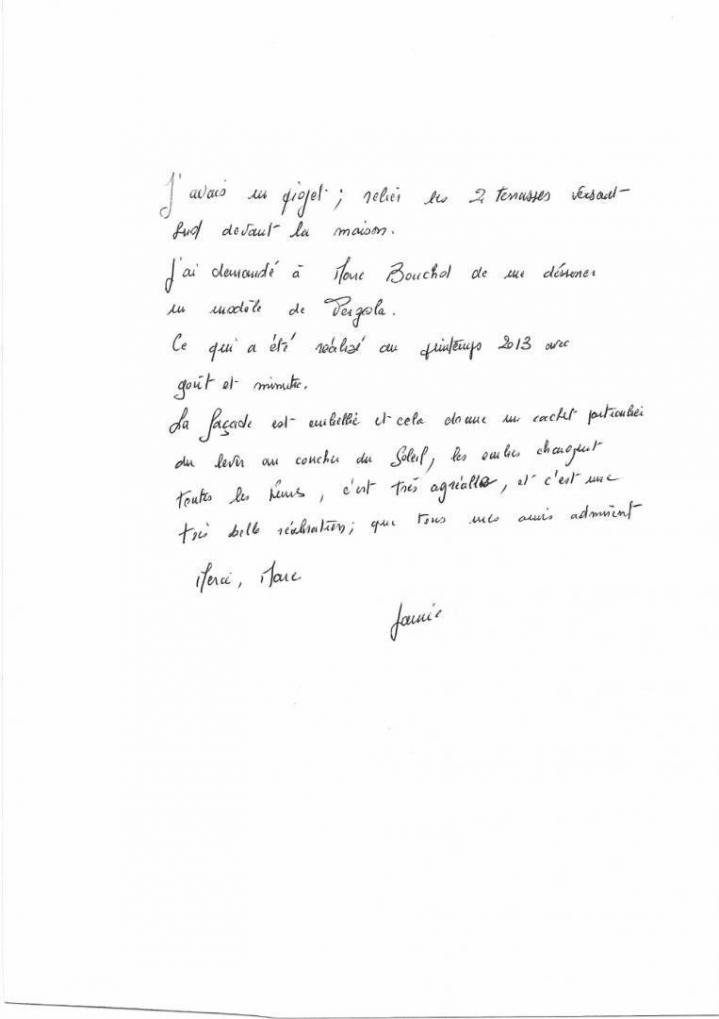 J'avais un projet ; relier les 2 terrasses versant
Sud devant la maison.
J'ai demandé à Marc Bouchol de me dessiner
un modèle de Pergola.
Ce qui a été réalisé au printemps 2013 avec
goût et minutie.
La façade est embellie et cela donne un cachet particulier
du lever au coucher du Soleil, les ombres changent
toutes les heures, c'est très agréable, et c'est une
très belle réalisation ; que tous mes amis admirent
Merci, Marc